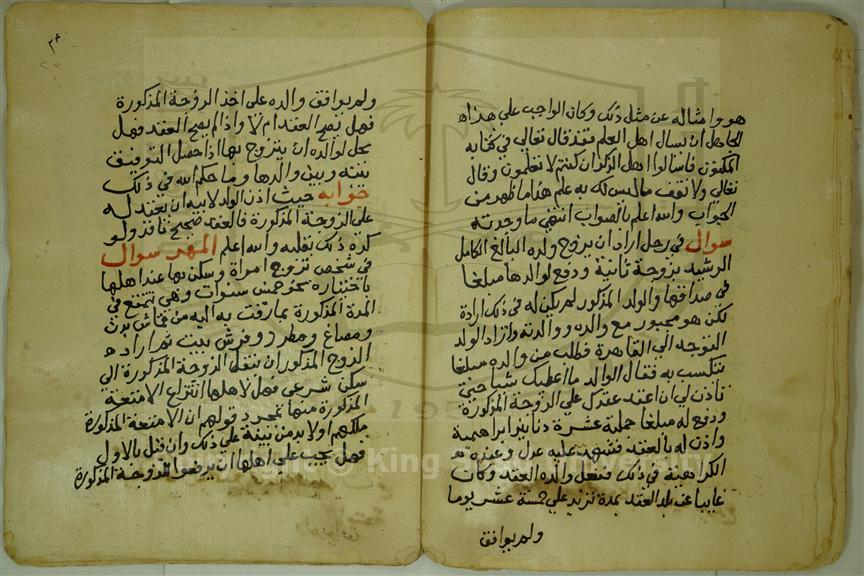 هو وامثاله عن مثل ذلك وكان الواجب على هذا
الجاهل ان يسال اهل العلم فقد قال تعالى في كتابه
المكنون فاسالوا اهل الذكر ان كنتم لا تعلمون وقال
تعالى ولا تقف ما ليس لك به علم هذا ما ظهر من
الجواب والله اعلم بالصواب انتهى ما وجدته
سوال في رجل اراد ان يزوج ولده البالغ الكامل
الرشيد بزوجة ثانية ودفع لوالدها مبلغا
في صداقها والولد المذكور لم يكن له في ذلك ارادة
لكن هو مجبور مع والده ووالدته واراد الولد
التوجه الى القاهرة فطلب من والده مبلغا
يتكسب به فقال الوالد ما اعطيك شيا حتى
تاذن لي ان اعقد عقدك على الزوجة المذكورة
ودفع له مبلغا جملته عشرة دنانير ابراهيمية
واذن له بالعقد فشهد عليه عدل وعنده
الكراهية في ذلك ففعل والده العقد وكان
غايبا عن بلد العقد بمدة تزيد على خمسة عشر يوما
ولم يوافق
٣٤
ولم يوافق والده على اخذ الزوجة المذكورة
فهل يصح العقد ام لا واذا لم يصح العقد فهل
يحل لوالده ان يتزوج بها اذا حصل التوفيق
بينه وبين والدها وما حكم الله في ذلك
جوابه حيث اذن الولد لابيه ان يعقد له
على الزوجة المذكورة فالعقد صحيح نافذ ولو
كره ذلك بقلبه والله اعلم المهر سوال
في شخص تزوج امراة وسكن بها عند اهلها
باختياره نحو خمس سنوات وهي تتمتع في
المدة المذكورة بما زفت به اليه من قماش بدن
ومصاغ ومطرز وفرش بيت ثم اراد
الزوج المذكور ان ينقل الزوجة المذكورة الى
سكن شرعي فهل لاهلها انتزاع الامتعة
المذكورة منها بمجرد قولهم ان الامتعة المذكورة
ملكهم او لا بد من بينة على ذلك وان قيل بالاول
فهل يجب على اهلها ان يدفعوا للزوجة المذكورة